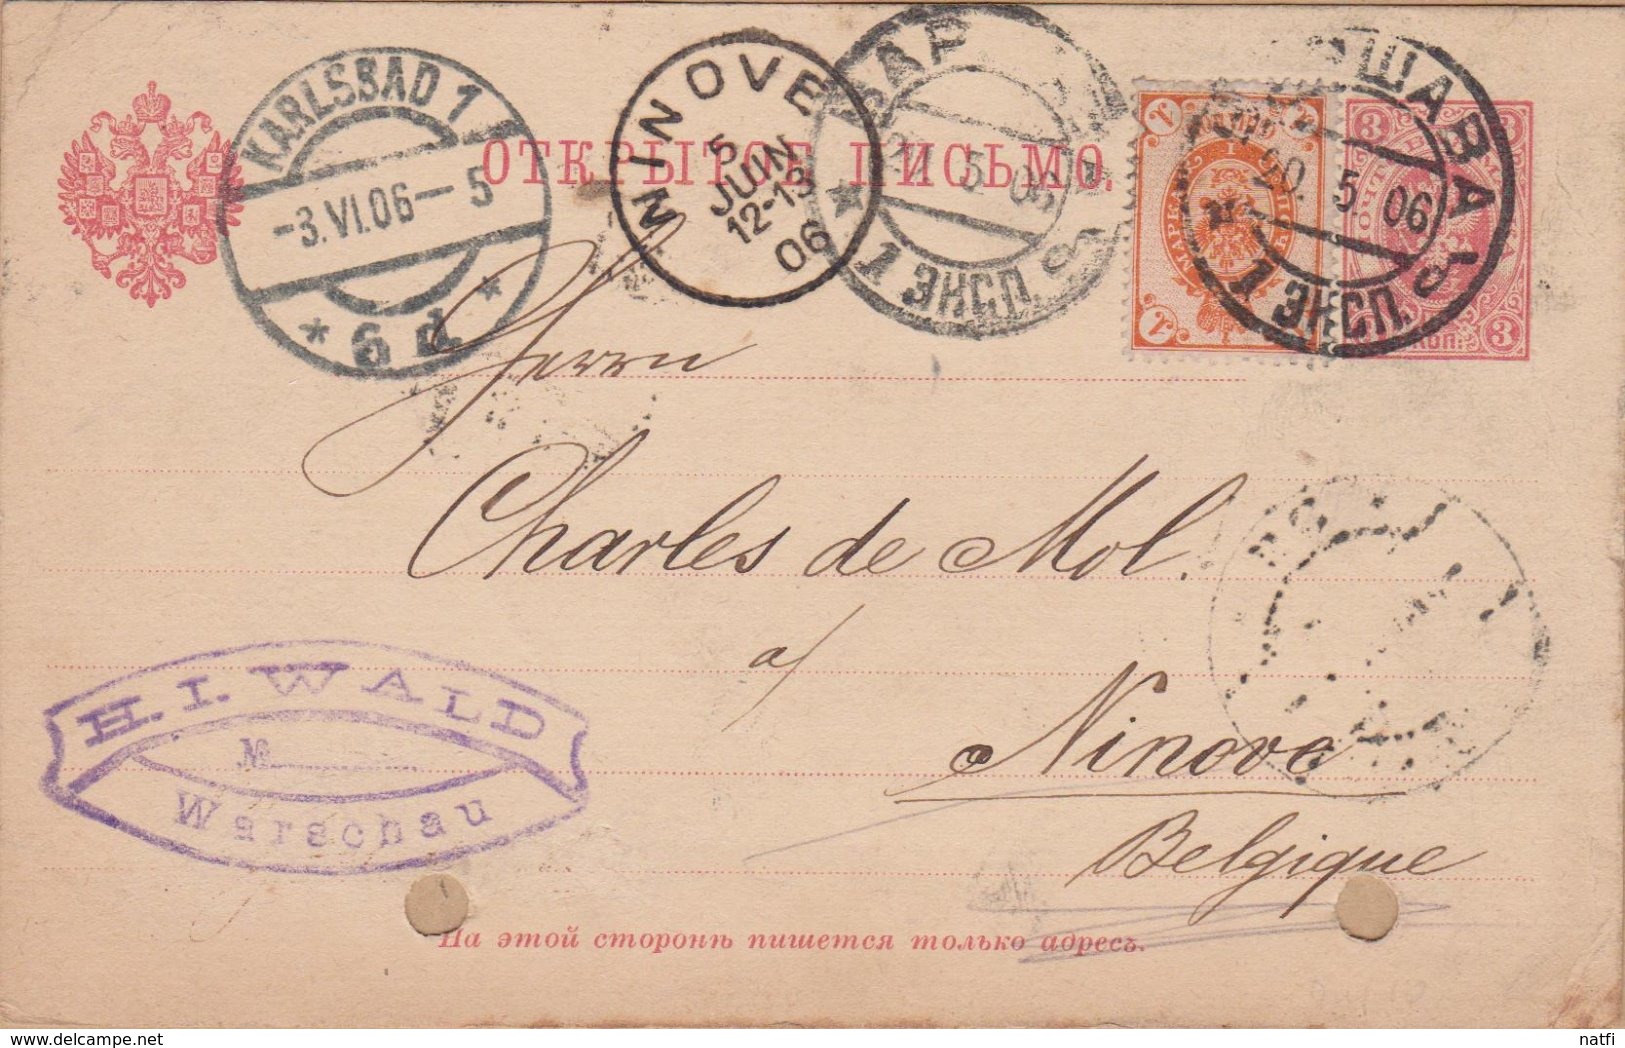 ОТКРЫТОЕ ПИСЬМО.
KARLSBAD 1
-3.VI.06-5
* 6 d *
NINOVE
5
JUIN
12-13
06
ВАР
5 06
* 1 ЭКСП.
1
МАРКА
1
ШАВА
20. 5 06
1 ЭКСП.
3
3
КОП.
Herrn
Charles de Mol.
a/
Ninove
Belgique
H. I. WALD
№
Warschau
На этой сторонѣ пишется только адресъ.
natfi